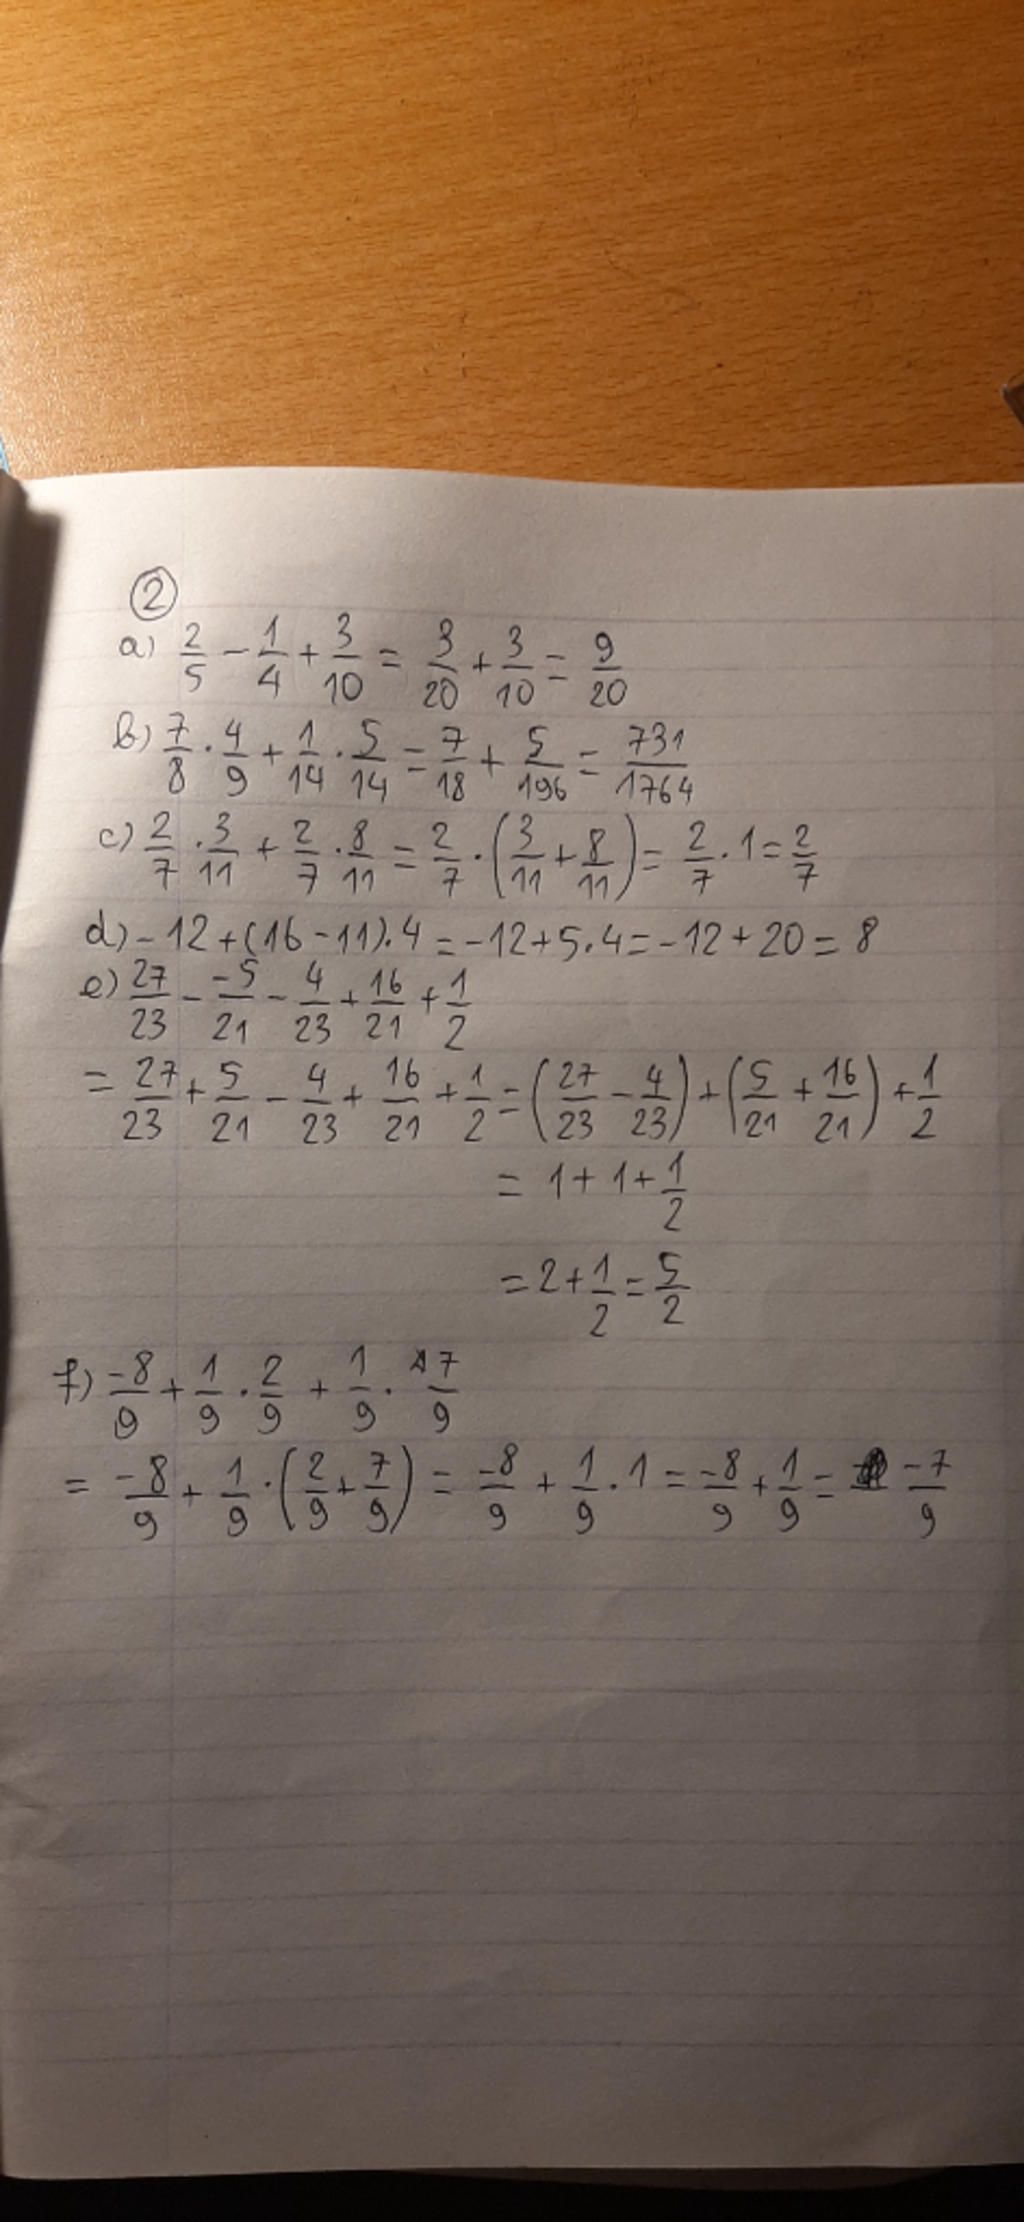 ②
a) 2/5 - 1/4 + 3/10 = 3/20 + 3/10 = 9/20
b) 7/8 . 4/9 + 1/14 . 5/14 = 7/18 + 5/196 = 731/1764
c) 2/7 . 3/11 + 2/7 . 8/11 = 2/7 . (3/11 + 8/11) = 2/7 . 1 = 2/7
d) - 12 + (16 - 11) . 4 = -12 + 5 . 4 = -12 + 20 = 8
e) 27/23 - -5/21 - 4/23 + 16/21 + 1/2
= 27/23 + 5/21 - 4/23 + 16/21 + 1/2 = (27/23 - 4/23) + (5/21 + 16/21) + 1/2
= 1 + 1 + 1/2
= 2 + 1/2 = 5/2
f) -8/9 + 1/9 . 2/9 + 1/9 . 7/9
= -8/9 + 1/9 . (2/9 + 7/9) = -8/9 + 1/9 . 1 = -8/9 + 1/9 = -7/9